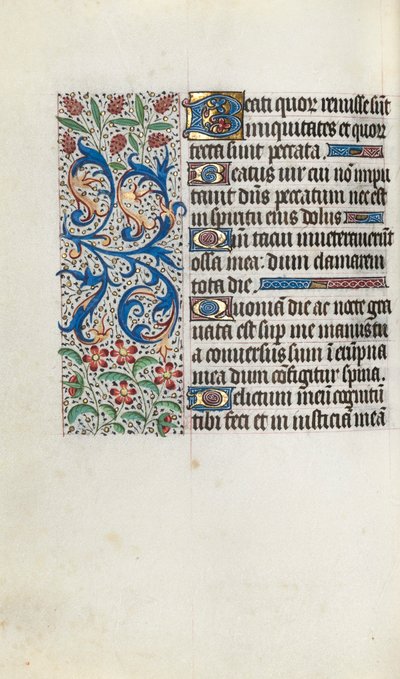 Beati quor remisse sūt
iniquitates et quor
tecta sunt peccata.
Beatus vir cui nō impu
tauit dn̄s peccatum nec est
in spiritu eius dolus
Qm̄ tacui inueterauerūt
ossa mea: dum clamarem
tota die.
Quoniā die ac nocte gra
uata est sup me manus tu
a conuersus sum ī erūpna
mea dum cōfigitur spina.
Delictum meū cognitū
tibi feci et in iusticiā meā